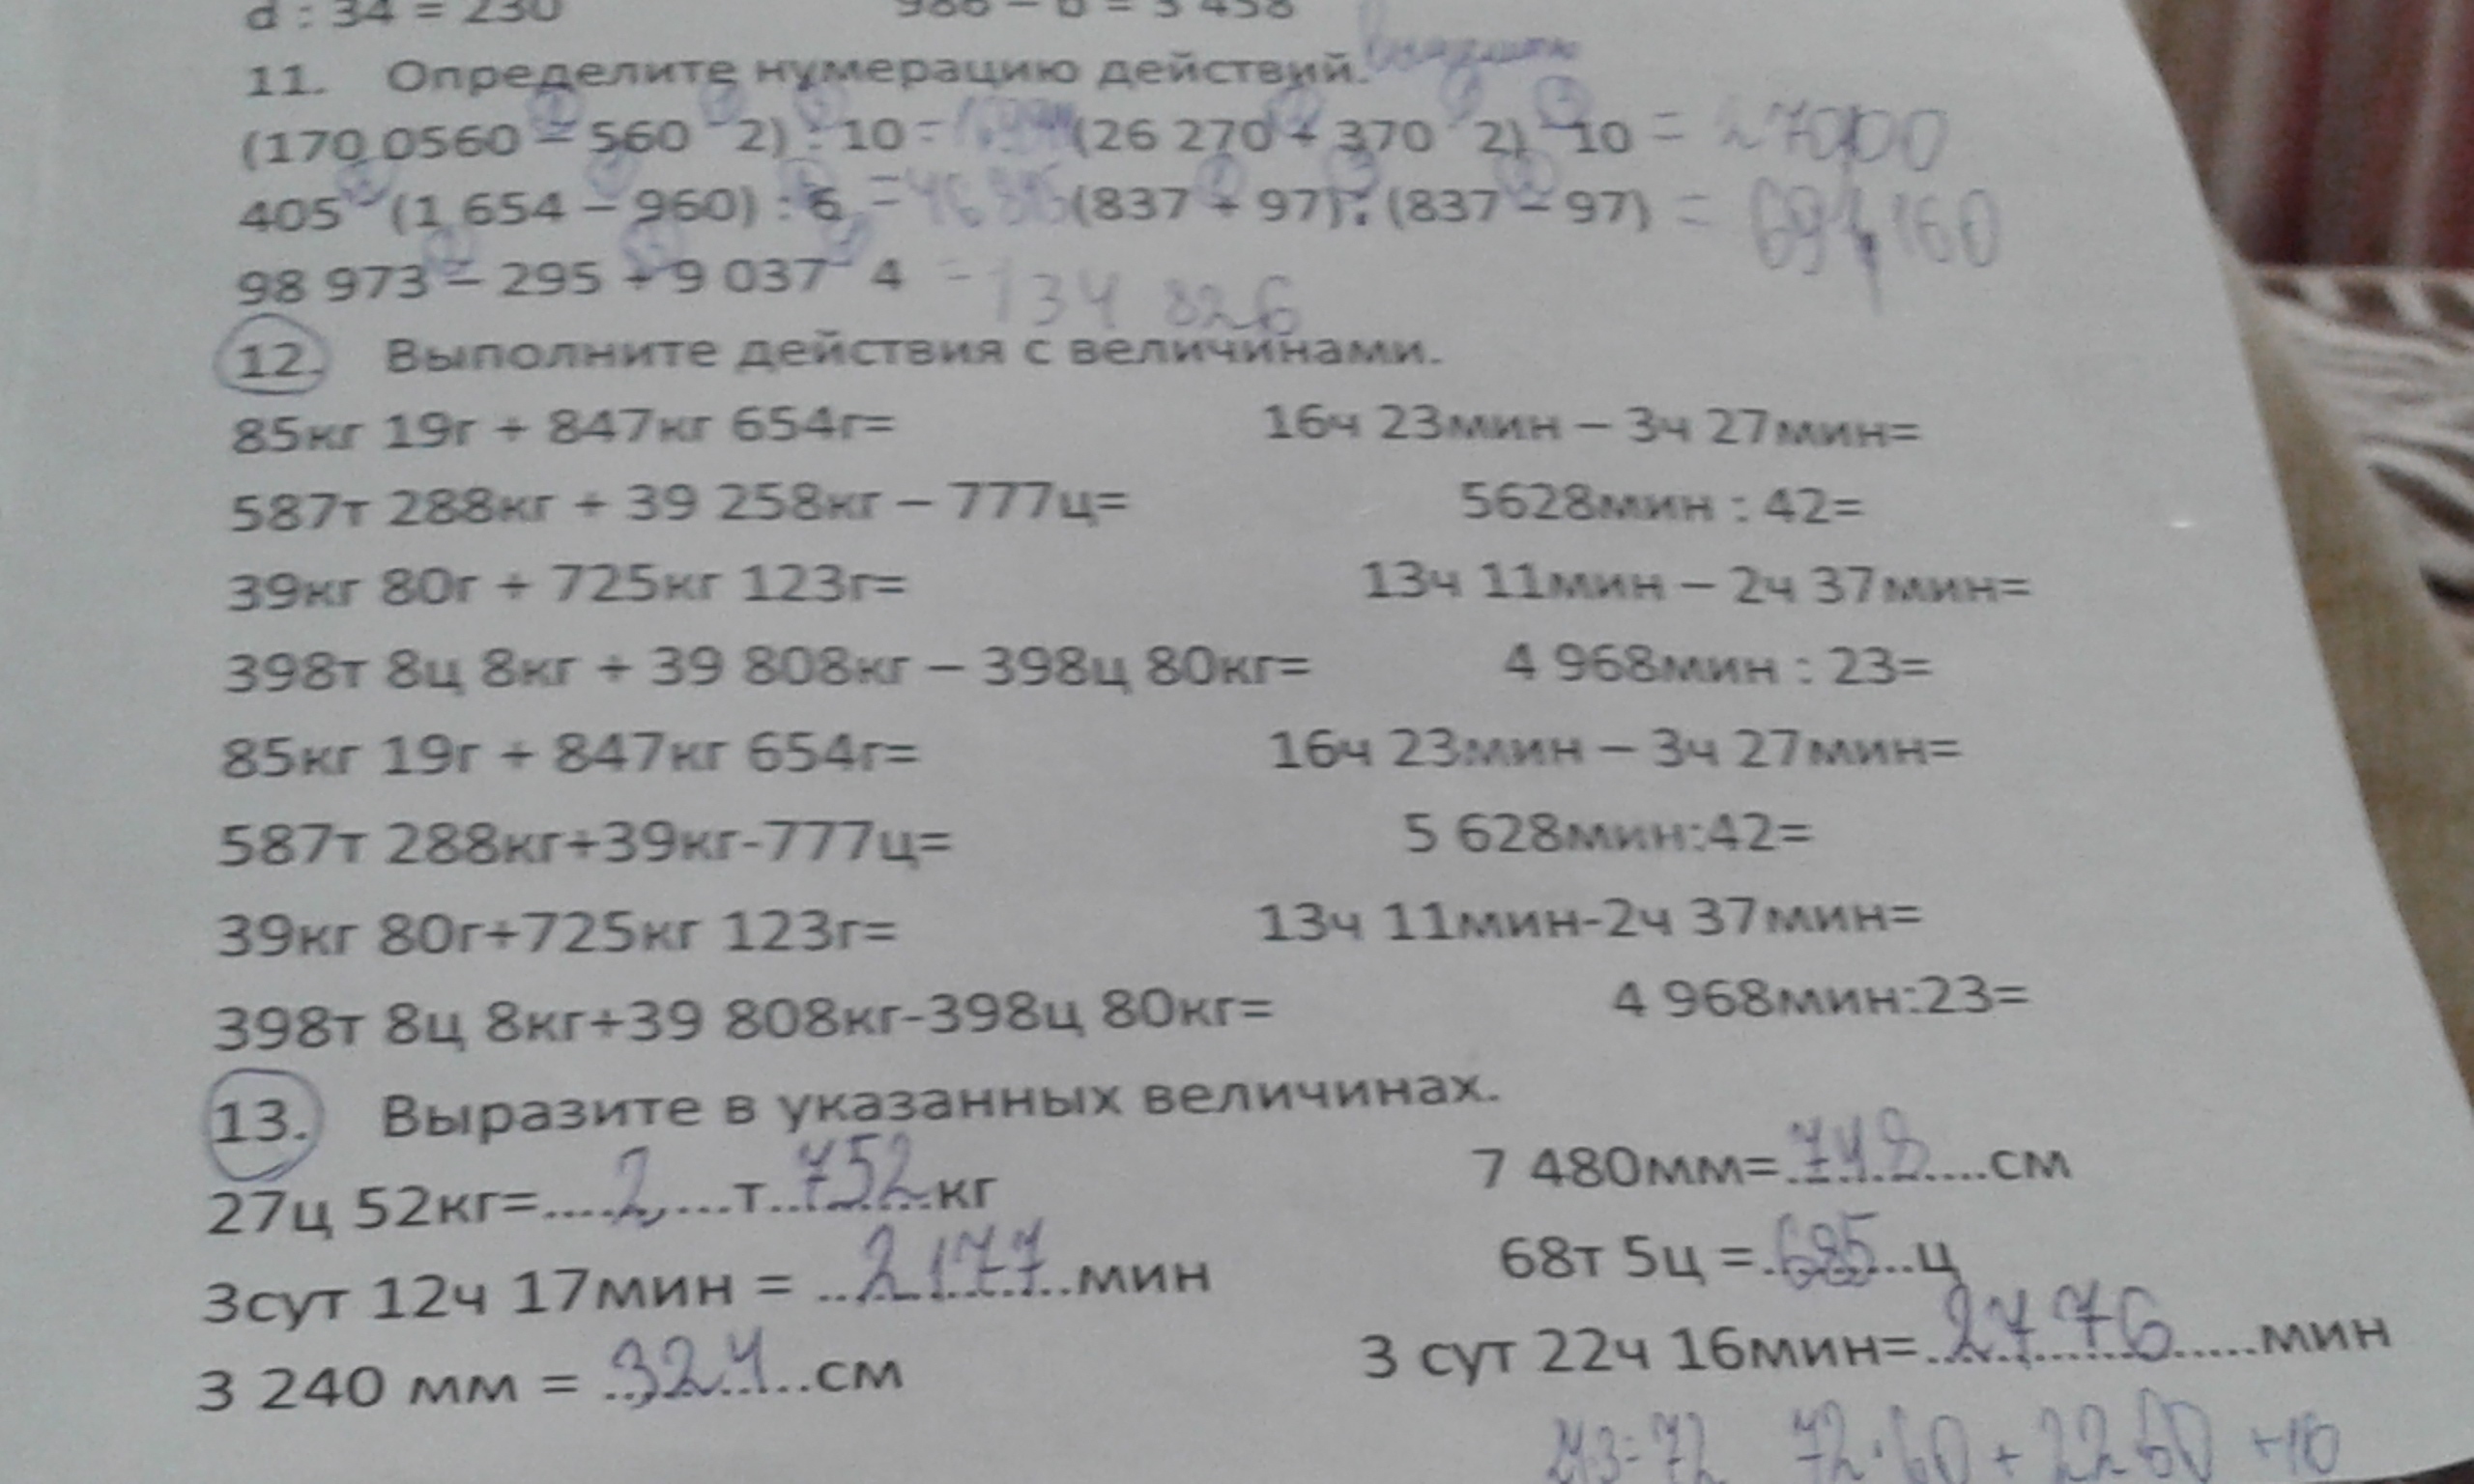 d : 34 = 230 986 – b = 3 458
11. Определите нумерацию действий.
(170 0560 – 560 2) : 10 = (26 270 + 370 2) 10 = 27000
405 (1 654 – 960) : 6 = (837 + 97) : (837 – 97) = 691,160
98 973 – 295 + 9 037 4 = 134 826
12. Выполните действия с величинами.
85кг 19г + 847кг 654г= 16ч 23мин – 3ч 27мин=
587т 288кг + 39 258кг – 777ц= 5628мин : 42=
39кг 80г + 725кг 123г= 13ч 11мин – 2ч 37мин=
398т 8ц 8кг + 39 808кг – 398ц 80кг= 4 968мин : 23=
85кг 19г + 847кг 654г= 16ч 23мин – 3ч 27мин=
587т 288кг+39кг-777ц= 5 628мин:42=
39кг 80г+725кг 123г= 13ч 11мин-2ч 37мин=
398т 8ц 8кг+39 808кг-398ц 80кг= 4 968мин:23=
13. Выразите в указанных величинах.
27ц 52кг=....2....т..752..кг 7 480мм=.748....см
3сут 12ч 17мин = ..2177..мин 68т 5ц =.685...ц
3 240 мм = ..324...см 3 сут 22ч 16мин=..2776.....мин
24·3=72 72·60 + 22 60 +10